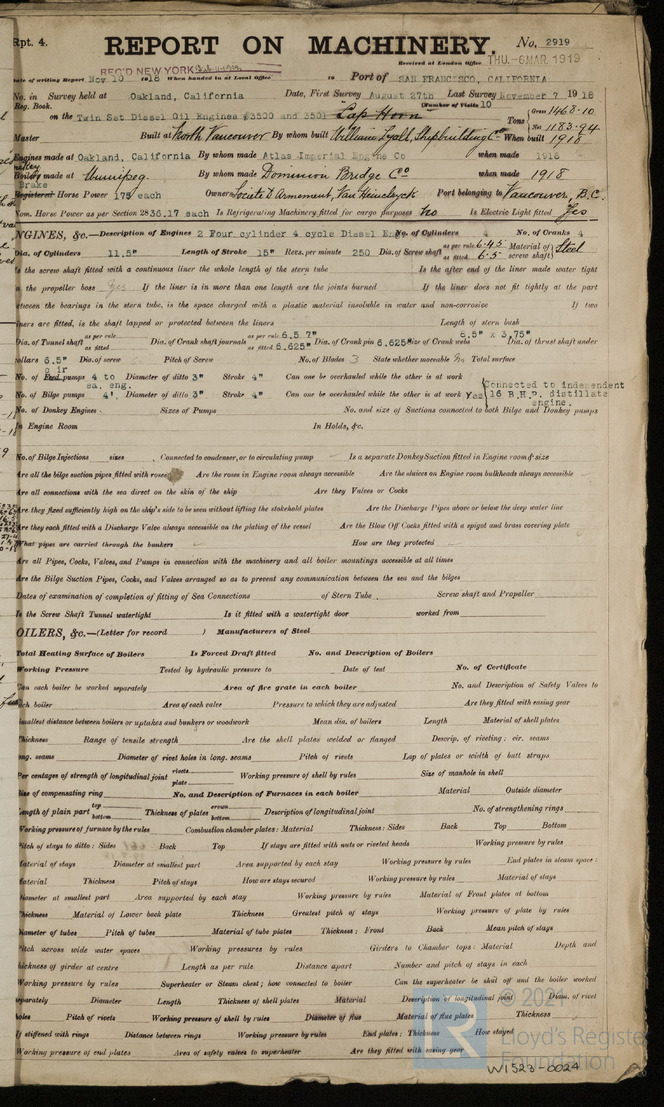 Rpt. 4.
REPORT ON MACHINERY. No. 2919
Received at London Office THU-6 MAR 1919
Date of writing Report Nov 10 1918 When handed in at Local Office 19 Port of SAN FRANCISCO, CALIFORNIA
REC'D NEW YORK
No. in Survey held at Oakland, California Date, First Survey August 27th Last Survey November 7 1918
Reg. Book. (Number of Visits 10
on the Twin Set Diesel Oil Engines #3500 and 3501 Cap Horn Tons Gross 1468.10 Net 1183.94
Master Built at North Vancouver By whom built William Lyall Shipbuilding Co When built 1918
Engines made at Oakland, California By whom made Atlas Imperial Engine Co when made 1918
Boilers made at Winnipeg. By whom made Dominion Bridge Co when made 1918
Brake
Registered Horse Power 175 each Owners Societe D'Armement, Van Hemelryck Port belonging to Vancouver, B.C.
Nom. Horse Power as per Section 28 36.17 each Is Refrigerating Machinery fitted for cargo purposes No Is Electric Light fitted Yes
ENGINES, &c.—Description of Engines 2 Four cylinder 4 cycle Diesel Eng No. of Cylinders 4 No. of Cranks 4
Dia. of Cylinders 11.5" Length of Stroke 15" Revs. per minute 250 Dia. of Screw shaft as per rule 6.45 as fitted 6.5" Material of screw shaft Steel
Is the screw shaft fitted with a continuous liner the whole length of the stern tube Is the after end of the liner made water tight
in the propeller boss Yes If the liner is in more than one length are the joints burned If the liner does not fit tightly at the part
between the bearings in the stern tube, is the space charged with a plastic material insoluble in water and non-corrosive If two
liners are fitted, is the shaft lapped or protected between the liners Length of stern bush
Dia. of Tunnel shaft as per rule as fitted Dia. of Crank shaft journals as per rule 6.57" as fitted 6.625" Dia. of Crank pin 6.625" Size of Crank webs 8.5" x 3.75" Dia. of thrust shaft under
collars 6.5" Dia. of screw Pitch of Screw No. of Blades 3 State whether moveable No Total surface
No. of Feed air pumps 4 to ea. eng. Diameter of ditto 3" Stroke 4" Can one be overhauled while the other is at work
No. of Bilge pumps 4' Diameter of ditto 3" Stroke 4" Can one be overhauled while the other is at work Yes Connected to independent 16 B.H.P. distillate engine.
No. of Donkey Engines Sizes of Pumps No. and size of Suctions connected to both Bilge and Donkey pumps
In Engine Room In Holds, &c.
No. of Bilge Injections sizes Connected to condenser, or to circulating pump Is a separate Donkey Suction fitted in Engine room & size
Are all the bilge suction pipes fitted with roses Are the roses in Engine room always accessible Are the sluices on Engine room bulkheads always accessible
Are all connections with the sea direct on the skin of the ship Are they Valves or Cocks
Are they fixed sufficiently high on the ship's side to be seen without lifting the stokehold plates Are the Discharge Pipes above or below the deep water line
Are they each fitted with a Discharge Valve always accessible on the plating of the vessel Are the Blow Off Cocks fitted with a spigot and brass covering plate
What pipes are carried through the bunkers How are they protected
Are all Pipes, Cocks, Valves, and Pumps in connection with the machinery and all boiler mountings accessible at all times
Are the Bilge Suction Pipes, Cocks, and Valves arranged so as to prevent any communication between the sea and the bilges
Dates of examination of completion of fitting of Sea Connections of Stern Tube Screw shaft and Propeller
Is the Screw Shaft Tunnel watertight Is it fitted with a watertight door worked from
OILERS, &c.—(Letter for record ) Manufacturers of Steel
Total Heating Surface of Boilers Is Forced Draft fitted No. and Description of Boilers
Working Pressure Tested by hydraulic pressure to Date of test No. of Certificate
Can each boiler be worked separately Area of fire grate in each boiler No. and Description of Safety Valves to
each boiler Area of each valve Pressure to which they are adjusted Are they fitted with easing gear
Smallest distance between boilers or uptakes and bunkers or woodwork Mean dia. of boilers Length Material of shell plates
Thickness Range of tensile strength Are the shell plates welded or flanged Descrip. of riveting: cir. seams
long. seams Diameter of rivet holes in long. seams Pitch of rivets Lap of plates or width of butt straps
Per centages of strength of longitudinal joint rivets plate Working pressure of shell by rules Size of manhole in shell
Size of compensating ring No. and Description of Furnaces in each boiler Material Outside diameter
Length of plain part top bottom Thickness of plates crown bottom Description of longitudinal joint No. of strengthening rings
Working pressure of furnace by the rules Combustion chamber plates: Material Thickness: Sides Back Top Bottom
Pitch of stays to ditto: Sides Back Top If stays are fitted with nuts or riveted heads Working pressure by rules
Material of stays Diameter at smallest part Area supported by each stay Working pressure by rules End plates in steam space:
Material Thickness Pitch of stays How are stays secured Working pressure by rules Material of stays
Diameter at smallest part Area supported by each stay Working pressure by rules Material of Front plates at bottom
Thickness Material of Lower back plate Thickness Greatest pitch of stays Working pressure of plate by rules
Diameter of tubes Pitch of tubes Material of tube plates Thickness: Front Back Mean pitch of stays
Pitch across wide water spaces Working pressures by rules Girders to Chamber tops: Material Depth and
thickness of girder at centre Length as per rule Distance apart Number and pitch of stays in each
Working pressure by rules Superheater or Steam chest; how connected to boiler Can the superheater be shut off and the boiler worked
separately Diameter Length Thickness of shell plates Material Description of longitudinal joint Diam. of rivet
holes Pitch of rivets Working pressure of shell by rules Diameter of flue Material of flue plates Thickness
If stiffened with rings Distance between rings Working pressure by rules End plates: Thickness How stayed
Working pressure of end plates Area of safety valves to superheater Are they fitted with easing gear
© 2021
Lloyd's Register
Foundation
W1523-0024